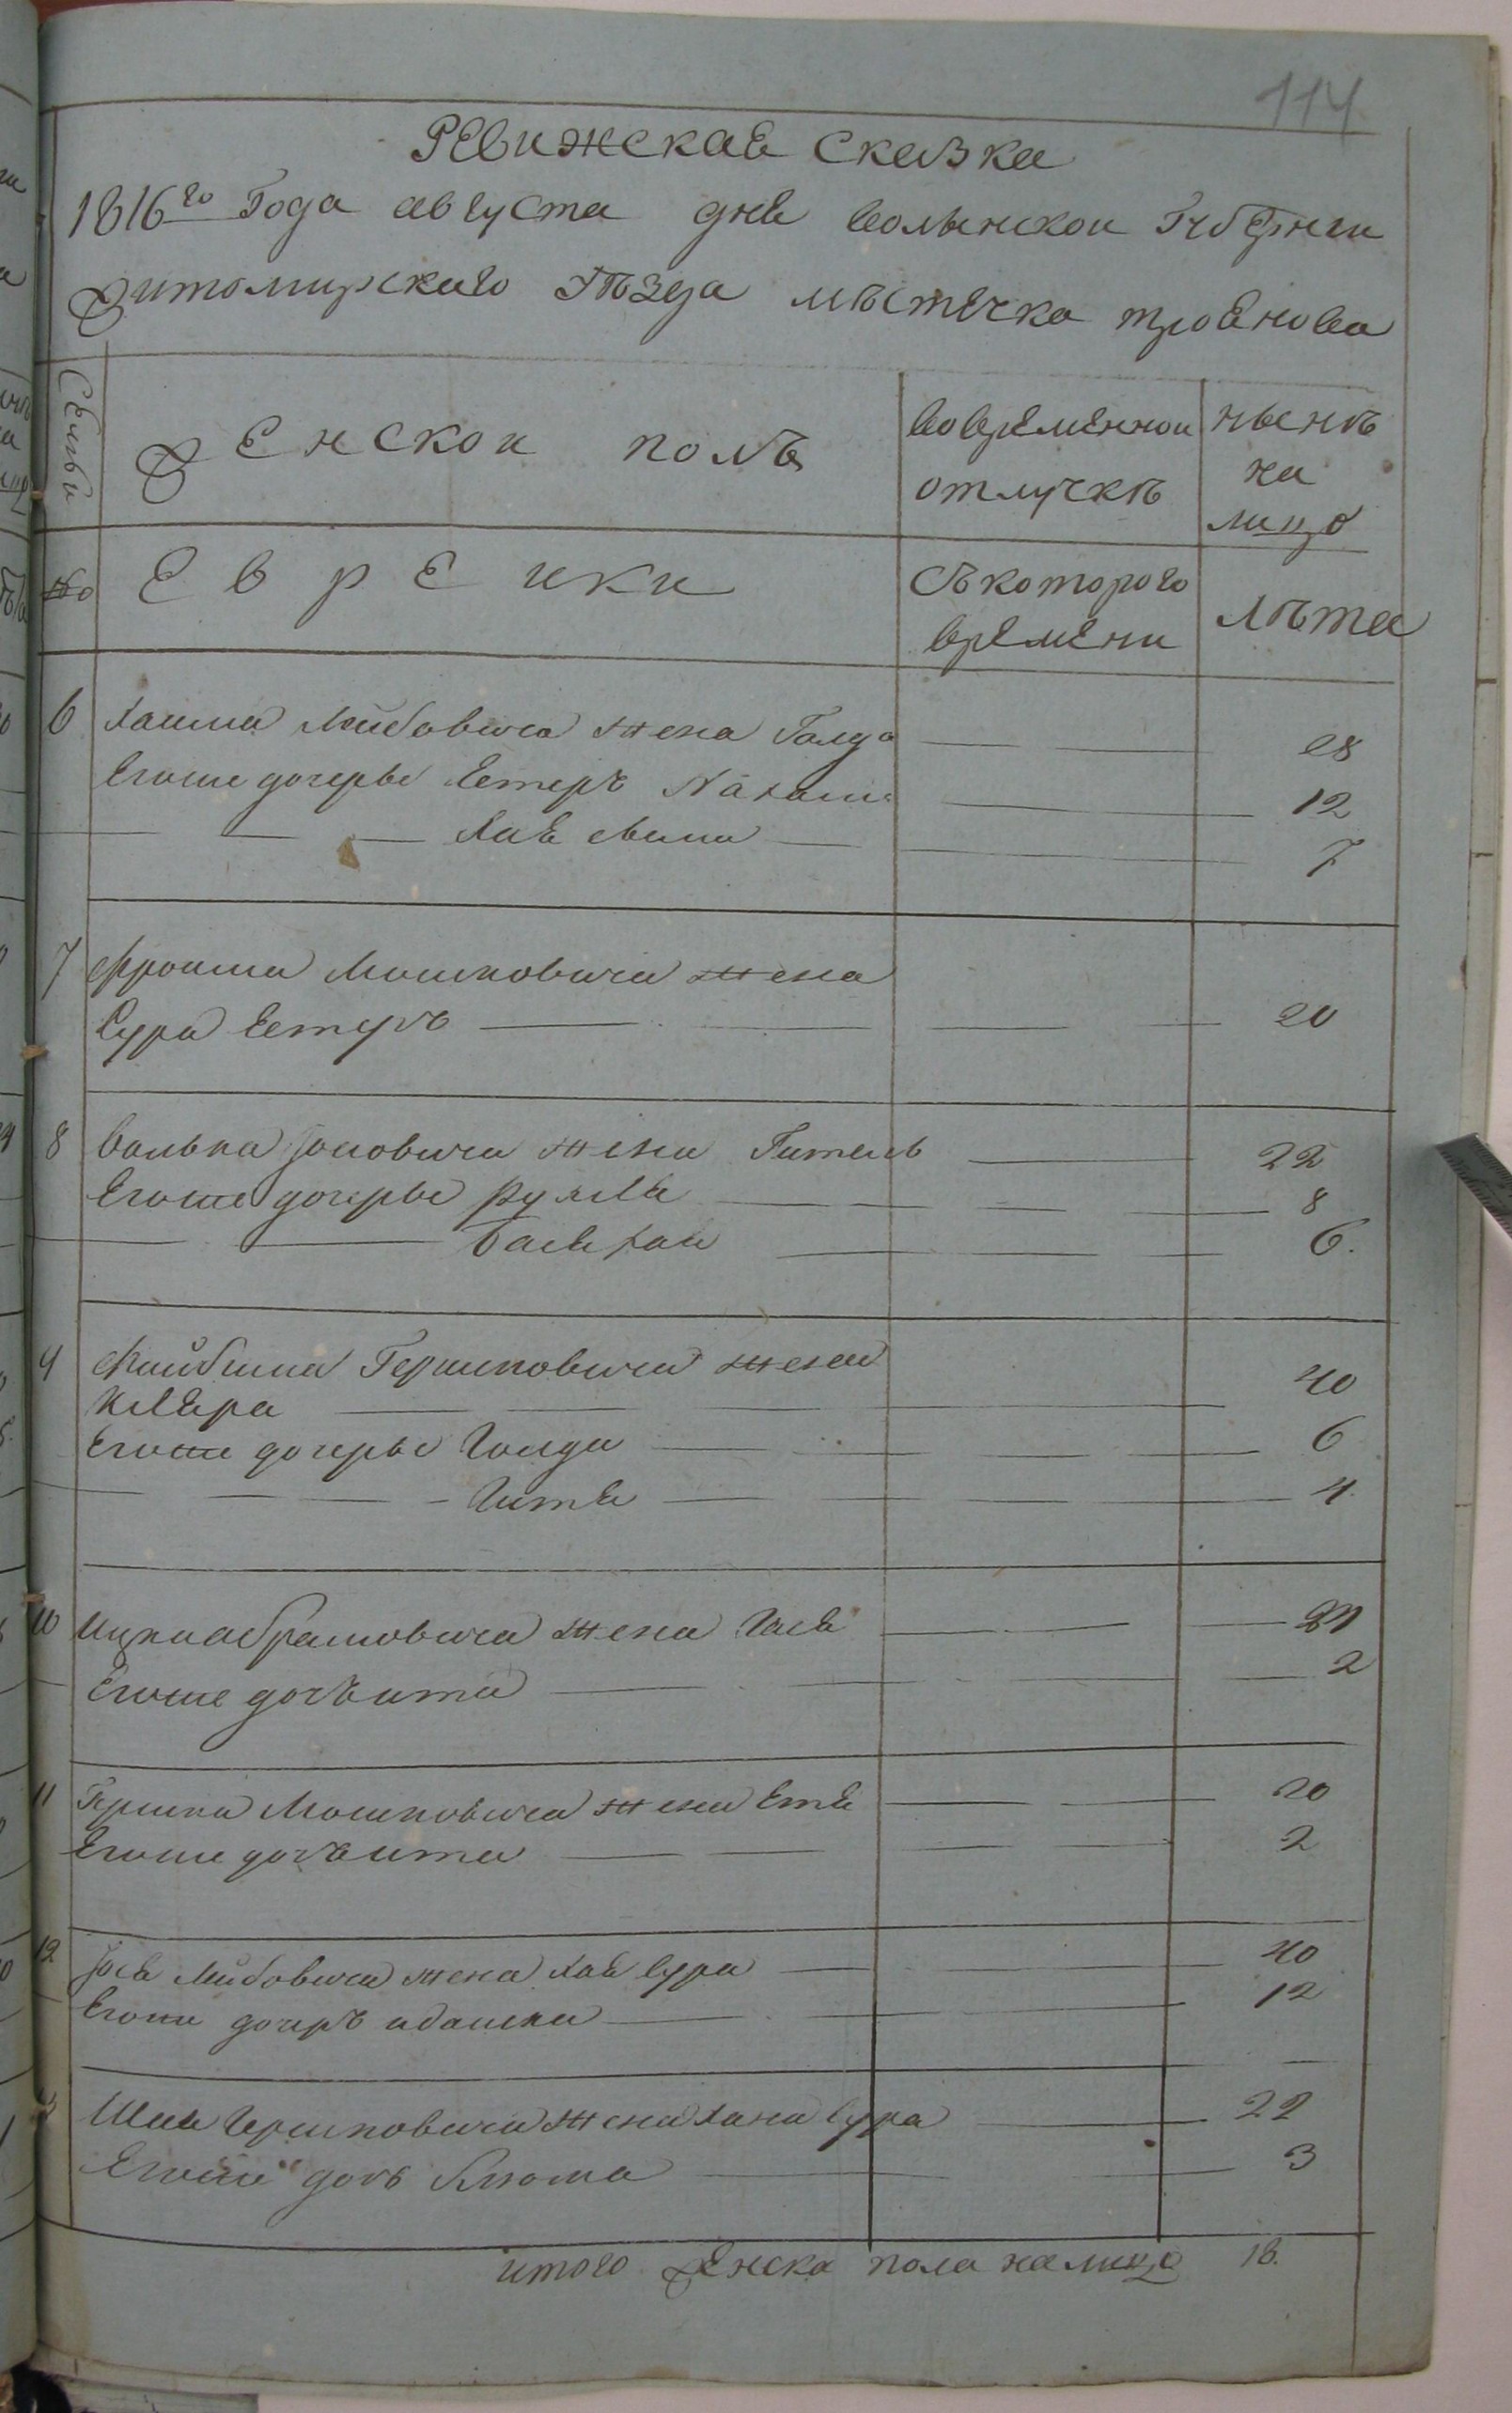 114
Ревижскаѣ Сказка
1816го Года августа днѣ волынскои Губѣрнги
Житомирскаго Уѣзда мѣстечка троѣнова
Сѣмьи
Женскои полъ
вовременнои
отлучкѣ
нынѣ
на
лицо
No
Евреики
Съкоторого
времени
Лѣта
6 Хаима Лейбовича жена Голда 28
Егоже дочерье Естеръ 12
7
7 Фроима Мошковича жена
Сура Естеръ 20
8 Волька Іосовича жена Гитель 22
Егоже дочерье 8
Басѣ хаи 6.
9 Файбиша Гершковича жена
40
Егоже дочерье Голда 6
Гитѣ 4.
10 Ицкиабрамовича жена Гасѣ
Егоже дочъ ита 2
11 Гершка Мошковича жена Етѣ 20
Егоже дочъ ита 2
12 Іосѣ Лейбовича жена Хаѣ Сура 40
Егоже дочеръ 12
Гершковича жена Хана Сура 22
Егоже дочъ блюма 3
итого Женска пола налицо 18.